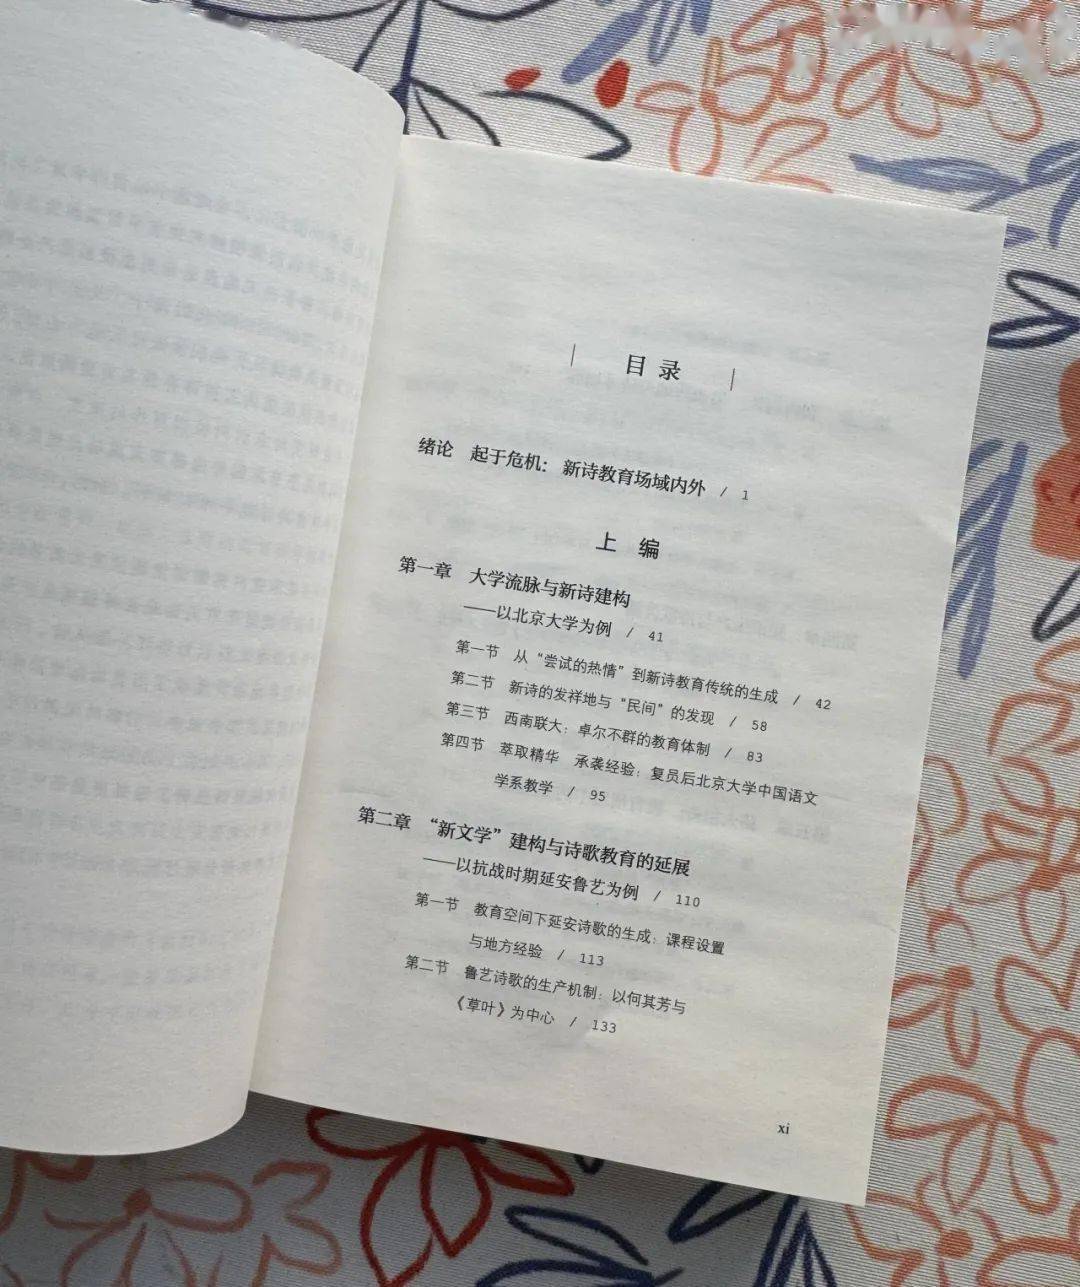 目录
绪论 起于危机：新诗教育场域内外 / 1
上编
第一章 大学流脉与新诗建构
——以北京大学为例 / 41
第一节 从“尝试的热情”到新诗教育传统的生成 / 42
第二节 新诗的发祥地与“民间”的发现 / 58
第三节 西南联大：卓尔不群的教育体制 / 83
第四节 萃取精华 承袭经验：复员后北京大学中国语文
学系教学 / 95
第二章 “新文学”建构与诗歌教育的延展
——以抗战时期延安鲁艺为例 / 110
第一节 教育空间下延安诗歌的生成：课程设置
与地方经验 / 113
第二节 鲁艺诗歌的生产机制：以何其芳与
《草叶》为中心 / 133
xi